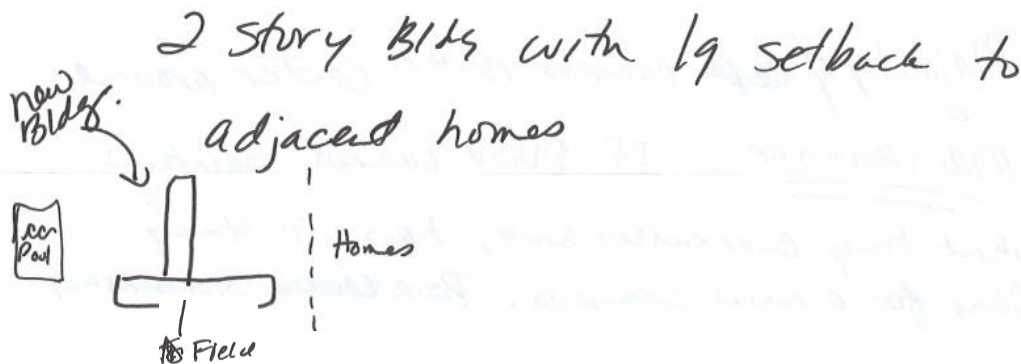 2 story Bldg with lg setback to
adjacent homes
new
Bldg.
Rec
Pool
Homes
Field